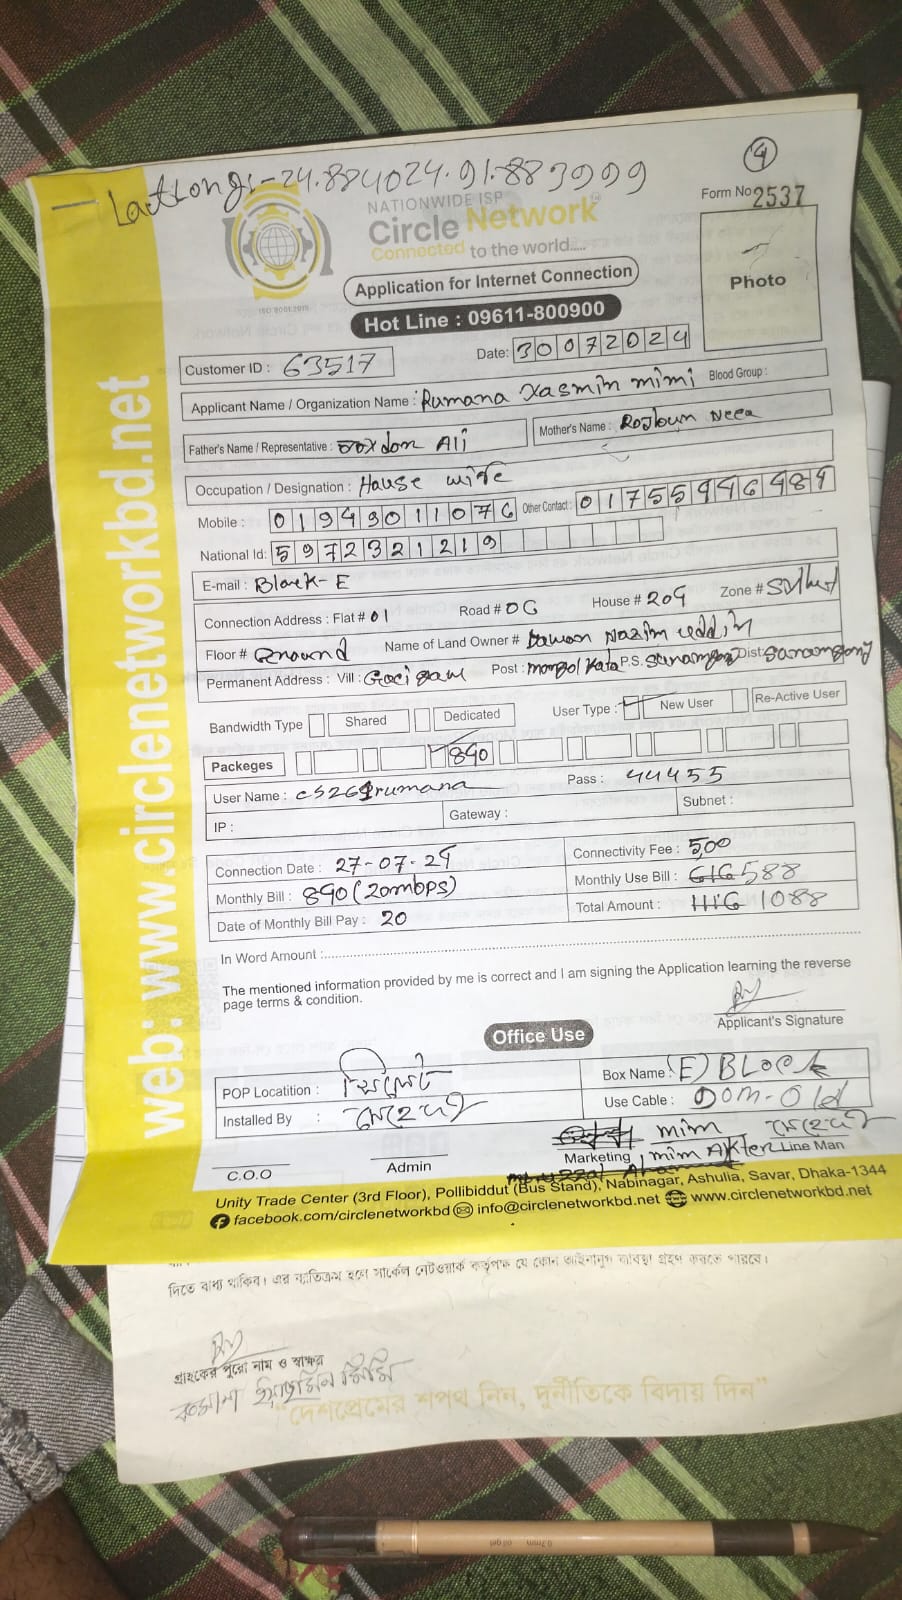 LatLong:-24.884024.91.883999
4
NATIONWIDE ISP
Circle Network
Connected to the world.....
ISO 9001:2015
Form No 2537
Photo
Application for Internet Connection
Hot Line : 09611-800900
Customer ID : 63517
Date: 30072024
Applicant Name / Organization Name : Rumana Yasmin mimi Blood Group :
Father's Name / Representative : Ali
Mother's Name :
Occupation / Designation : House wife
Mobile : 01949011076 Other Contact :
National Id: 5972321219
E-mail : Block-E
Connection Address : Flat # 01 Road # 06 House # 209 Zone # Sylhet
Floor # Ground Name of Land Owner # Nazim uddin
Permanent Address : Vill : Post : P.S. Dist:
Bandwidth Type Shared Dedicated User Type : New User Re-Active User
Packeges 890
User Name : cs261rumana Pass : 44455
IP : Gateway : Subnet :
Connection Date : 27-07-24 Connectivity Fee : 500
Monthly Bill : 890 (20mbps) Monthly Use Bill : 616 588
Date of Monthly Bill Pay : 20 Total Amount : 1116 1088
In Word Amount :
The mentioned information provided by me is correct and I am signing the Application learning the reverse
page terms & condition.
Applicant's Signature
Office Use
POP Locatition : সিলেট Box Name : (E) BLock
Installed By : Use Cable : DOM-Old
mim
C.O.O Admin Marketing mim AKter Line Man
Unity Trade Center (3rd Floor), Pollibiddut (Bus Stand), Nabinagar, Ashulia, Savar, Dhaka-1344
facebook.com/circlenetworkbd info@circlenetworkbd.net www.circlenetworkbd.net
web: www.circlenetworkbd.net
দিতে বাধ্য থাকিব। এর ব্যতিক্রম হলে সার্কেল নেটওয়ার্ক কর্তৃপক্ষ যে কোন আইনানুগ ব্যবস্থা গ্রহণ করতে পারবে।
গ্রাহকের পুরো নাম ও স্বাক্ষর
রুমানা ইয়াছমিন মিমি
"দেশপ্রেমের শপথ নিন, দুর্নীতিকে বিদায় দিন"